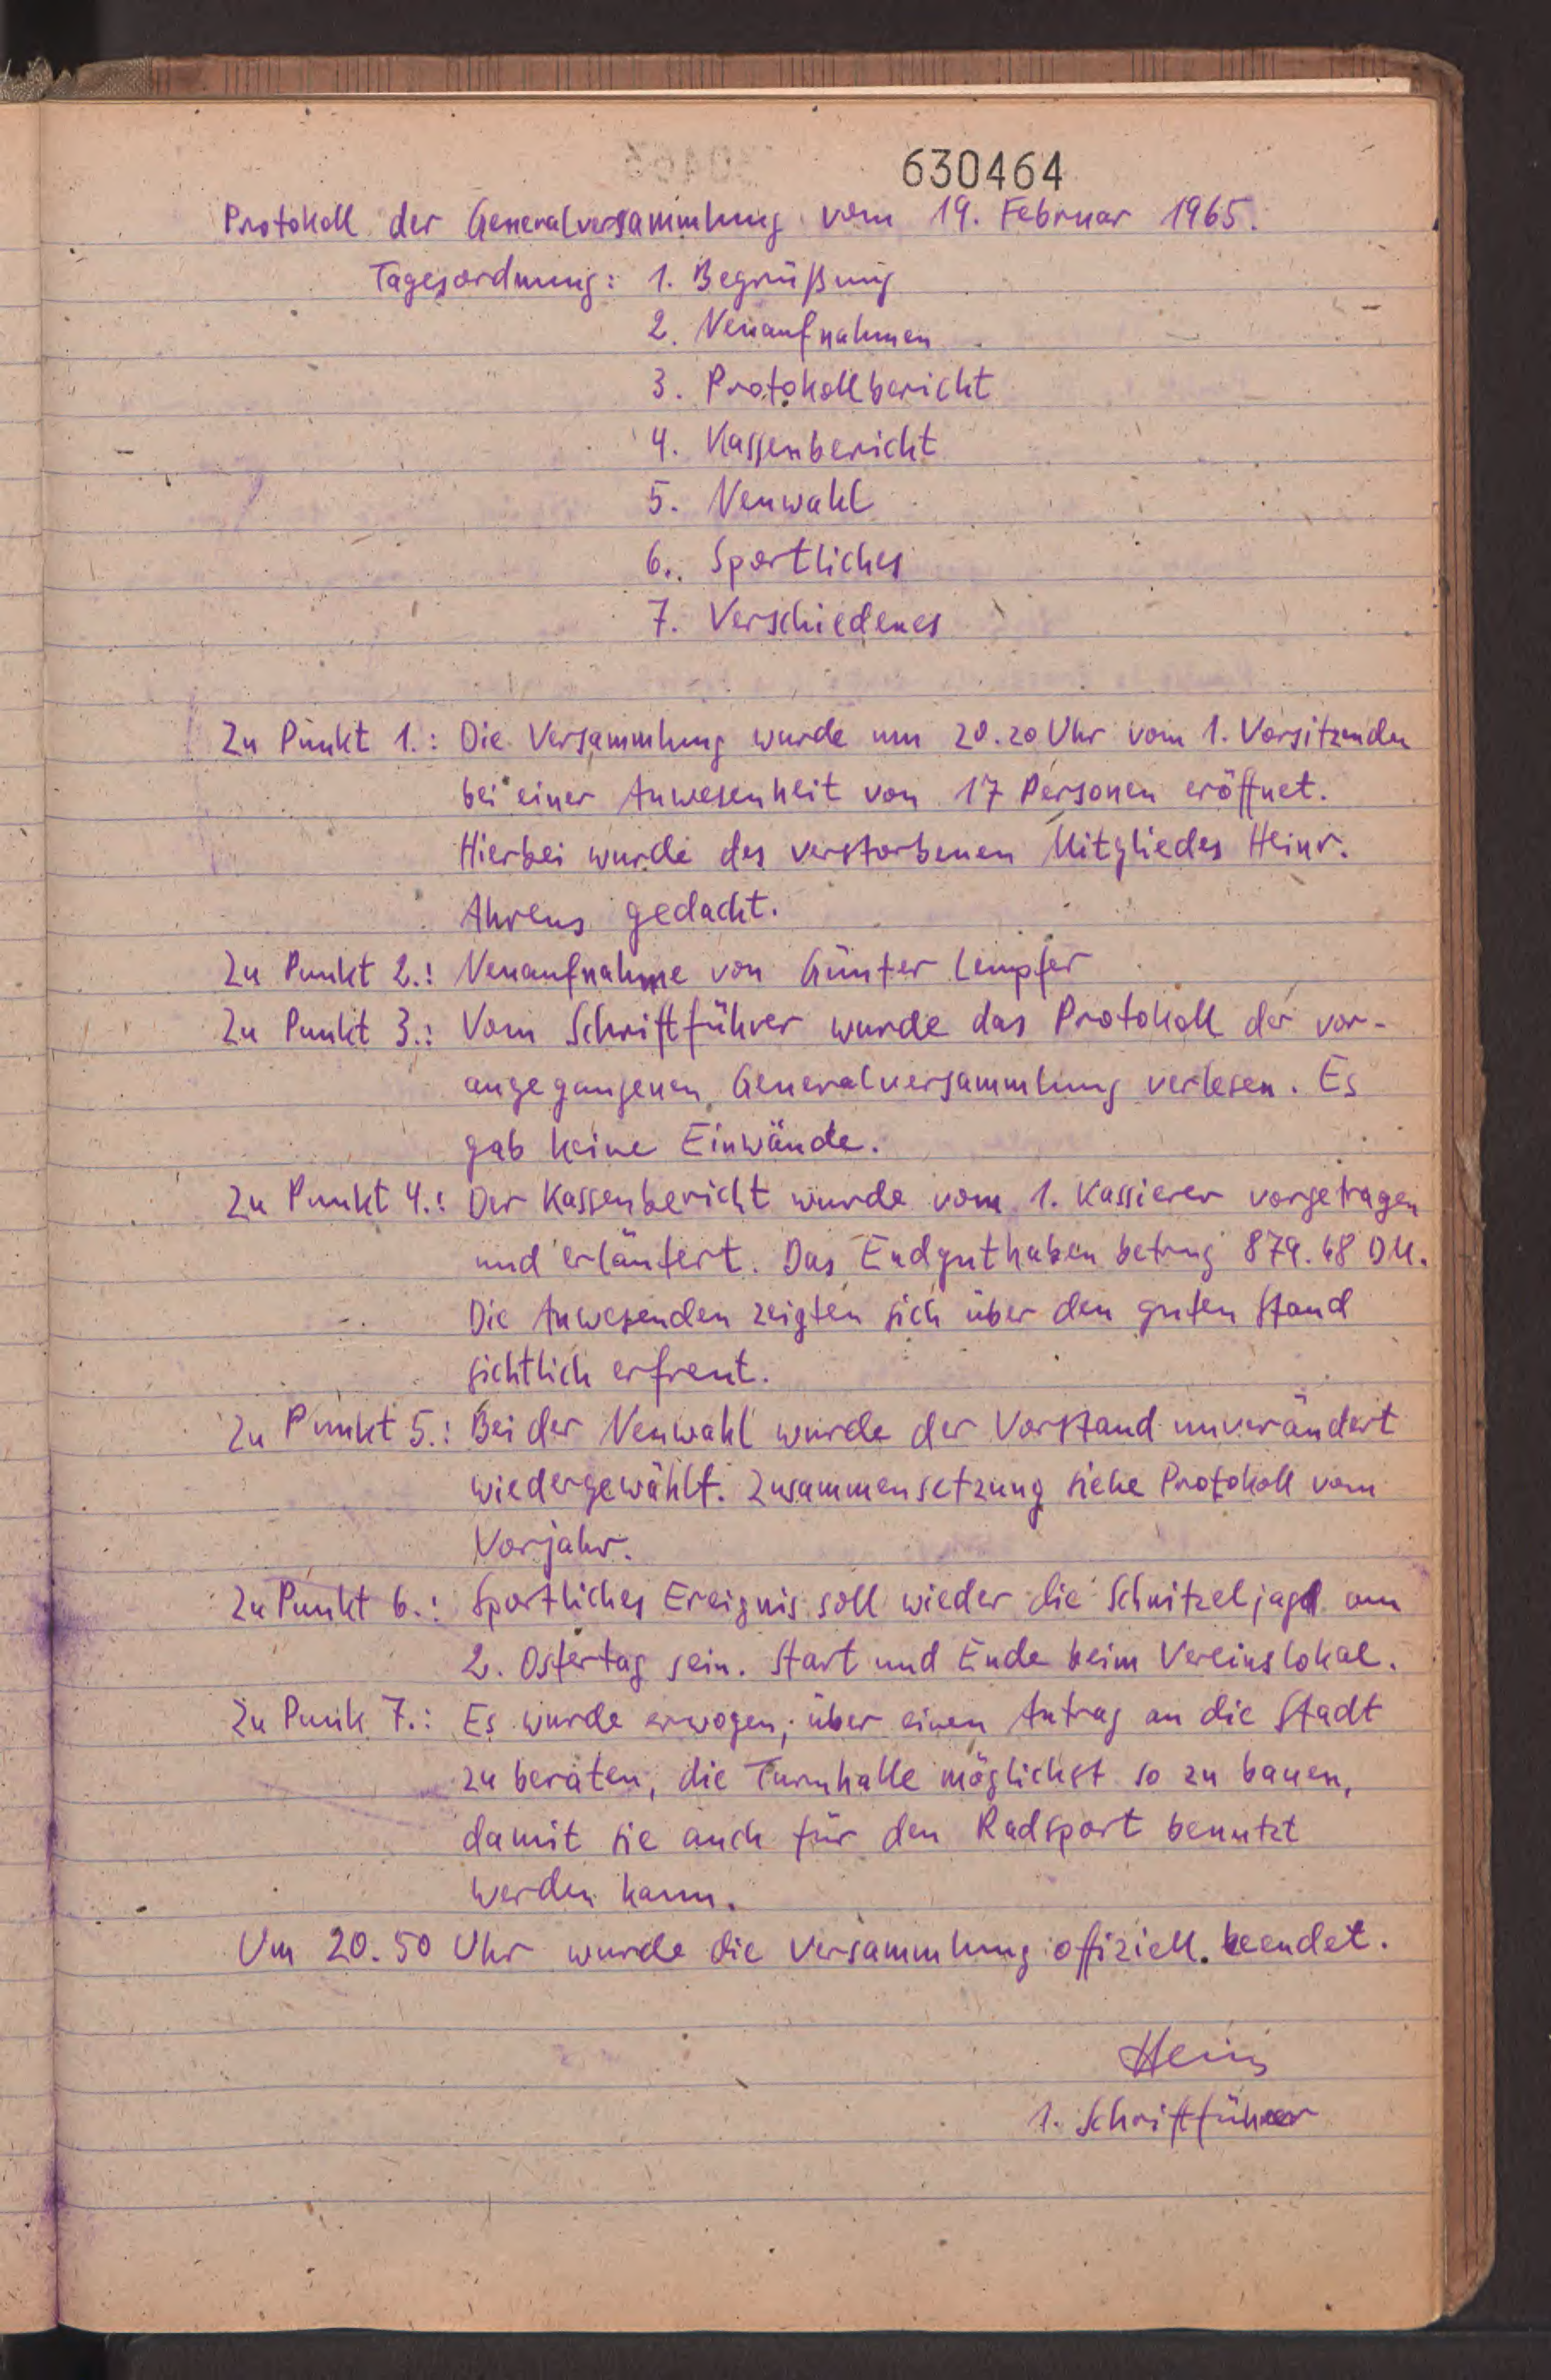 630464
Protokoll der Generalversammlung vom 19. Februar 1965.
Tagesordnung: 1. Begrüßung
2. Neuaufnahmen
3. Protokollbericht
4. Kassenbericht
5. Neuwahl
6. Sportliches
7. Verschiedenes
Zu Punkt 1.: Die Versammlung wurde um 20.20 Uhr vom 1. Vorsitzenden
bei einer Anwesenheit von 17 Personen eröffnet.
Hierbei wurde des verstorbenen Mitgliedes Heinr.
Ahrens gedacht.
Zu Punkt 2.: Neuaufnahme von Günter Lempfer
Zu Punkt 3.: Vom Schriftführer wurde das Protokoll der vor-
angegangenen Generalversammlung verlesen. Es
gab keine Einwände.
Zu Punkt 4.: Der Kassenbericht wurde vom 1. Kassierer vorgetragen
und erläutert. Das Endguthaben betrug 879.68 DM.
Die Anwesenden zeigten sich über den guten Stand
sichtlich erfreut.
Zu Punkt 5.: Bei der Neuwahl wurde der Vorstand unverändert
wiedergewählt. Zusammensetzung siehe Protokoll vom
Vorjahr.
Zu Punkt 6.: Sportliches Ereignis soll wieder die Schnitzeljagd am
2. Ostertag sein. Start und Ende beim Vereinslokal.
Zu Punk 7.: Es wurde erwogen, über einen Antrag an die Stadt
zu beraten, die Turnhalle möglichst so zu bauen,
damit sie auch für den Radsport benutzt
werden kann.
Um 20.50 Uhr wurde die Versammlung offiziell beendet.
1. Schriftführer